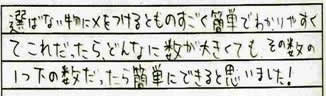 選ばない物に×をつけるとものすごく簡単でわかりやすく
てこれだったら、どんなに数が大きくても、その数の
1つ下の数だったら簡単にできると思いました!